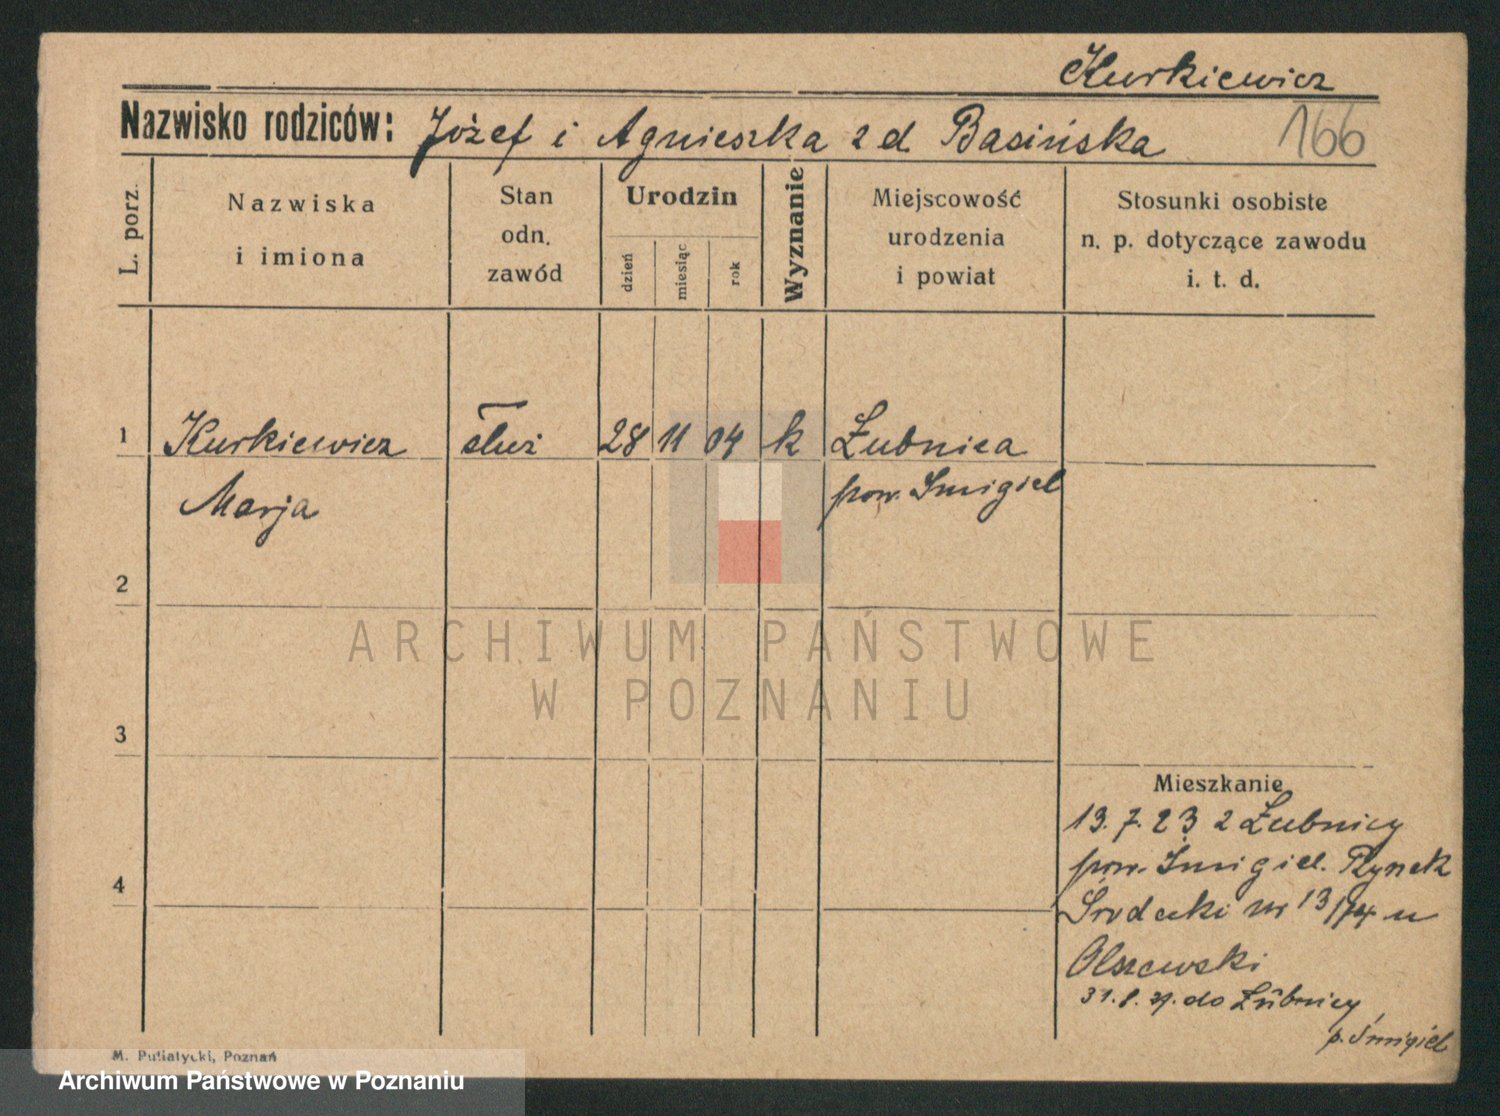 Kurkiewicz
Nazwisko rodziców: Józef i Agnieszka z d. Basińska
166
L. porz.
Nazwiska
i imiona
Stan
odn.
zawód
Urodzin
dzień
miesiąc
rok
Wyznanie
Miejscowość
urodzenia
i powiat
Stosunki osobiste
n. p. dotyczące zawodu
i. t. d.
1 Kurkiewicz służ 28 11 04 k Łubnica
Marja pow. Śmigiel
2
ARCHIWUM PAŃSTWOWE
W POZNANIU
3
4
Mieszkanie
13.7.23 z Łubnicy
pow. Śmigiel. Rynek
Śródecki nr 13/14 u
Olszewski
31.8. do Łubnicy
p. Śmigiel
M. Putiatycki, Poznań
Archiwum Państwowe w Poznaniu